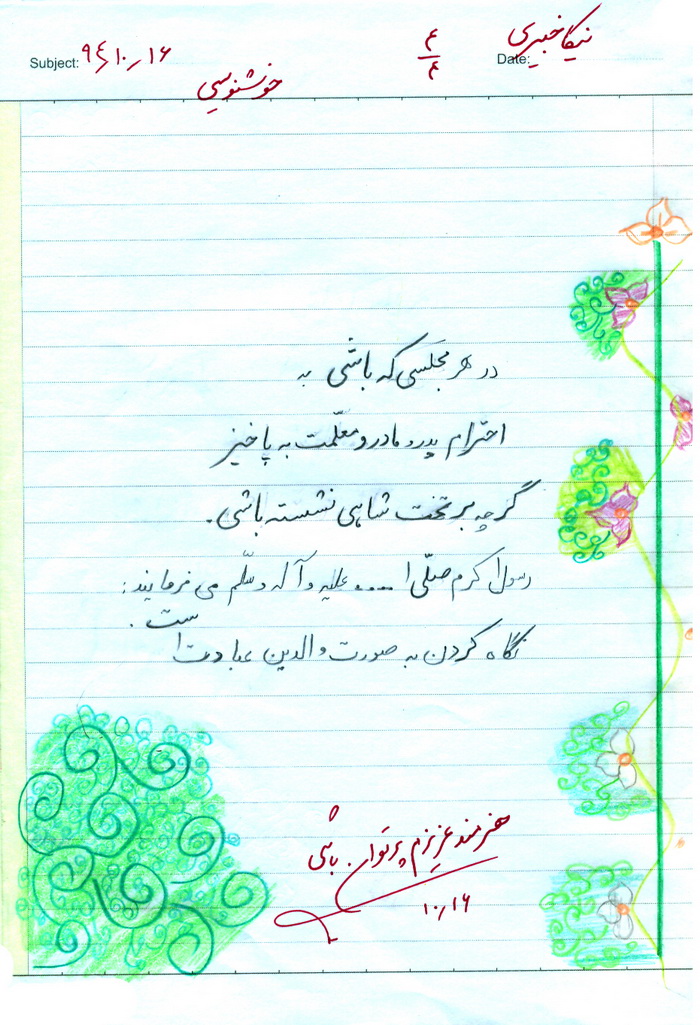 نیکا خبیری
Date:
۴
۴
Subject: ۹۴٫۱۰٫۱۶
خوشنویسی
در هر مجلسی که باشی به
احترام پدر و مادر و معلّمت به پا خیز
گر چه بر تخت شاهی نشسته باشی.
رسول اکرم صلّی ا... علیه و آله و سلّم می فرمایند:
نگاه کردن به صورت والدین عبادت است.
هنرمند عزیزم پرتوان باشی
۱۰٫۱۶